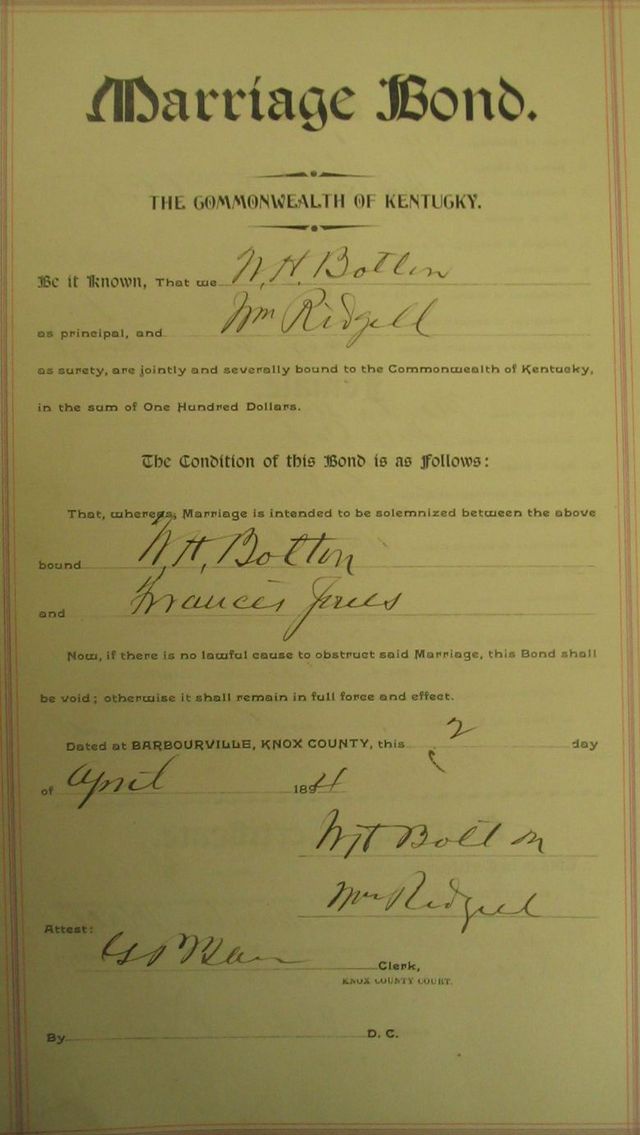 Marriage Bond.
THE COMMONWEALTH OF KENTUCKY.
Be it Known, That we W. H. Bolton
as principal, and Wm Ridgell
as surety, are jointly and severally bound to the Commonwealth of Kentucky,
in the sum of One Hundred Dollars.
The Condition of this Bond is as Follows:
That, whereas, Marriage is intended to be solemnized between the above
bound W. H. Bolton
and Frances Jones
Now, if there is no lawful cause to obstruct said Marriage, this Bond shall
be void; otherwise it shall remain in full force and effect.
Dated at BARBOURVILLE, KNOX COUNTY, this 2 day
of April 1894
W H Bolton
Wm Ridgell
Attest:
Clerk,
KNOX COUNTY COURT.
By D. C.